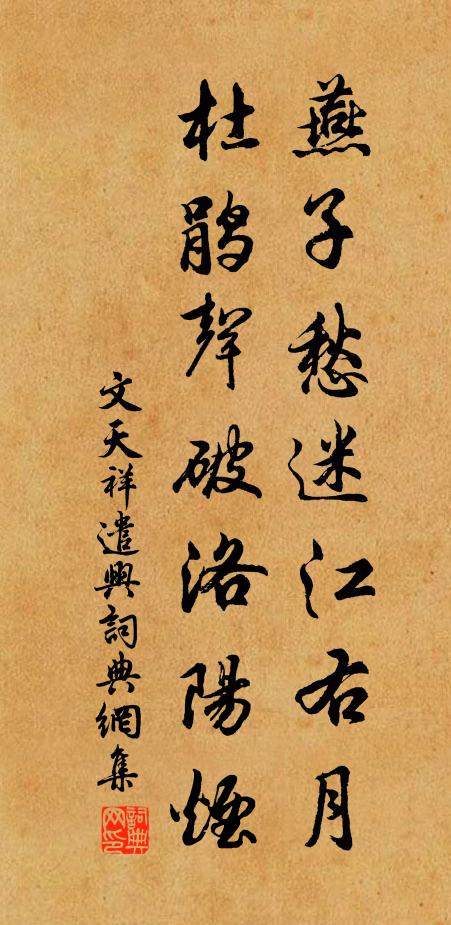 燕子愁迷江右月
杜鹃聲破洛陽煙
文天祥遣興詞典網集
詞典网印